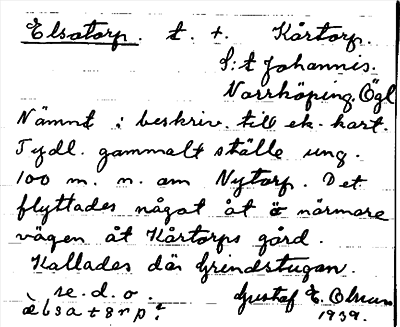 Elsatorp. t. +. Kårtorp.
S:t Johannis.
Norrköping. Ögl
Nämnt i beskriv. till ek. kart.
Tydl. gammalt ställe ung.
100 m. n. om Nytorp. Det
flyttades något åt ö närmare
vägen åt Kårtorps gård.
Kallades där Grindstugan.
se. d. o.
Gustaf E. Olsson
1939.